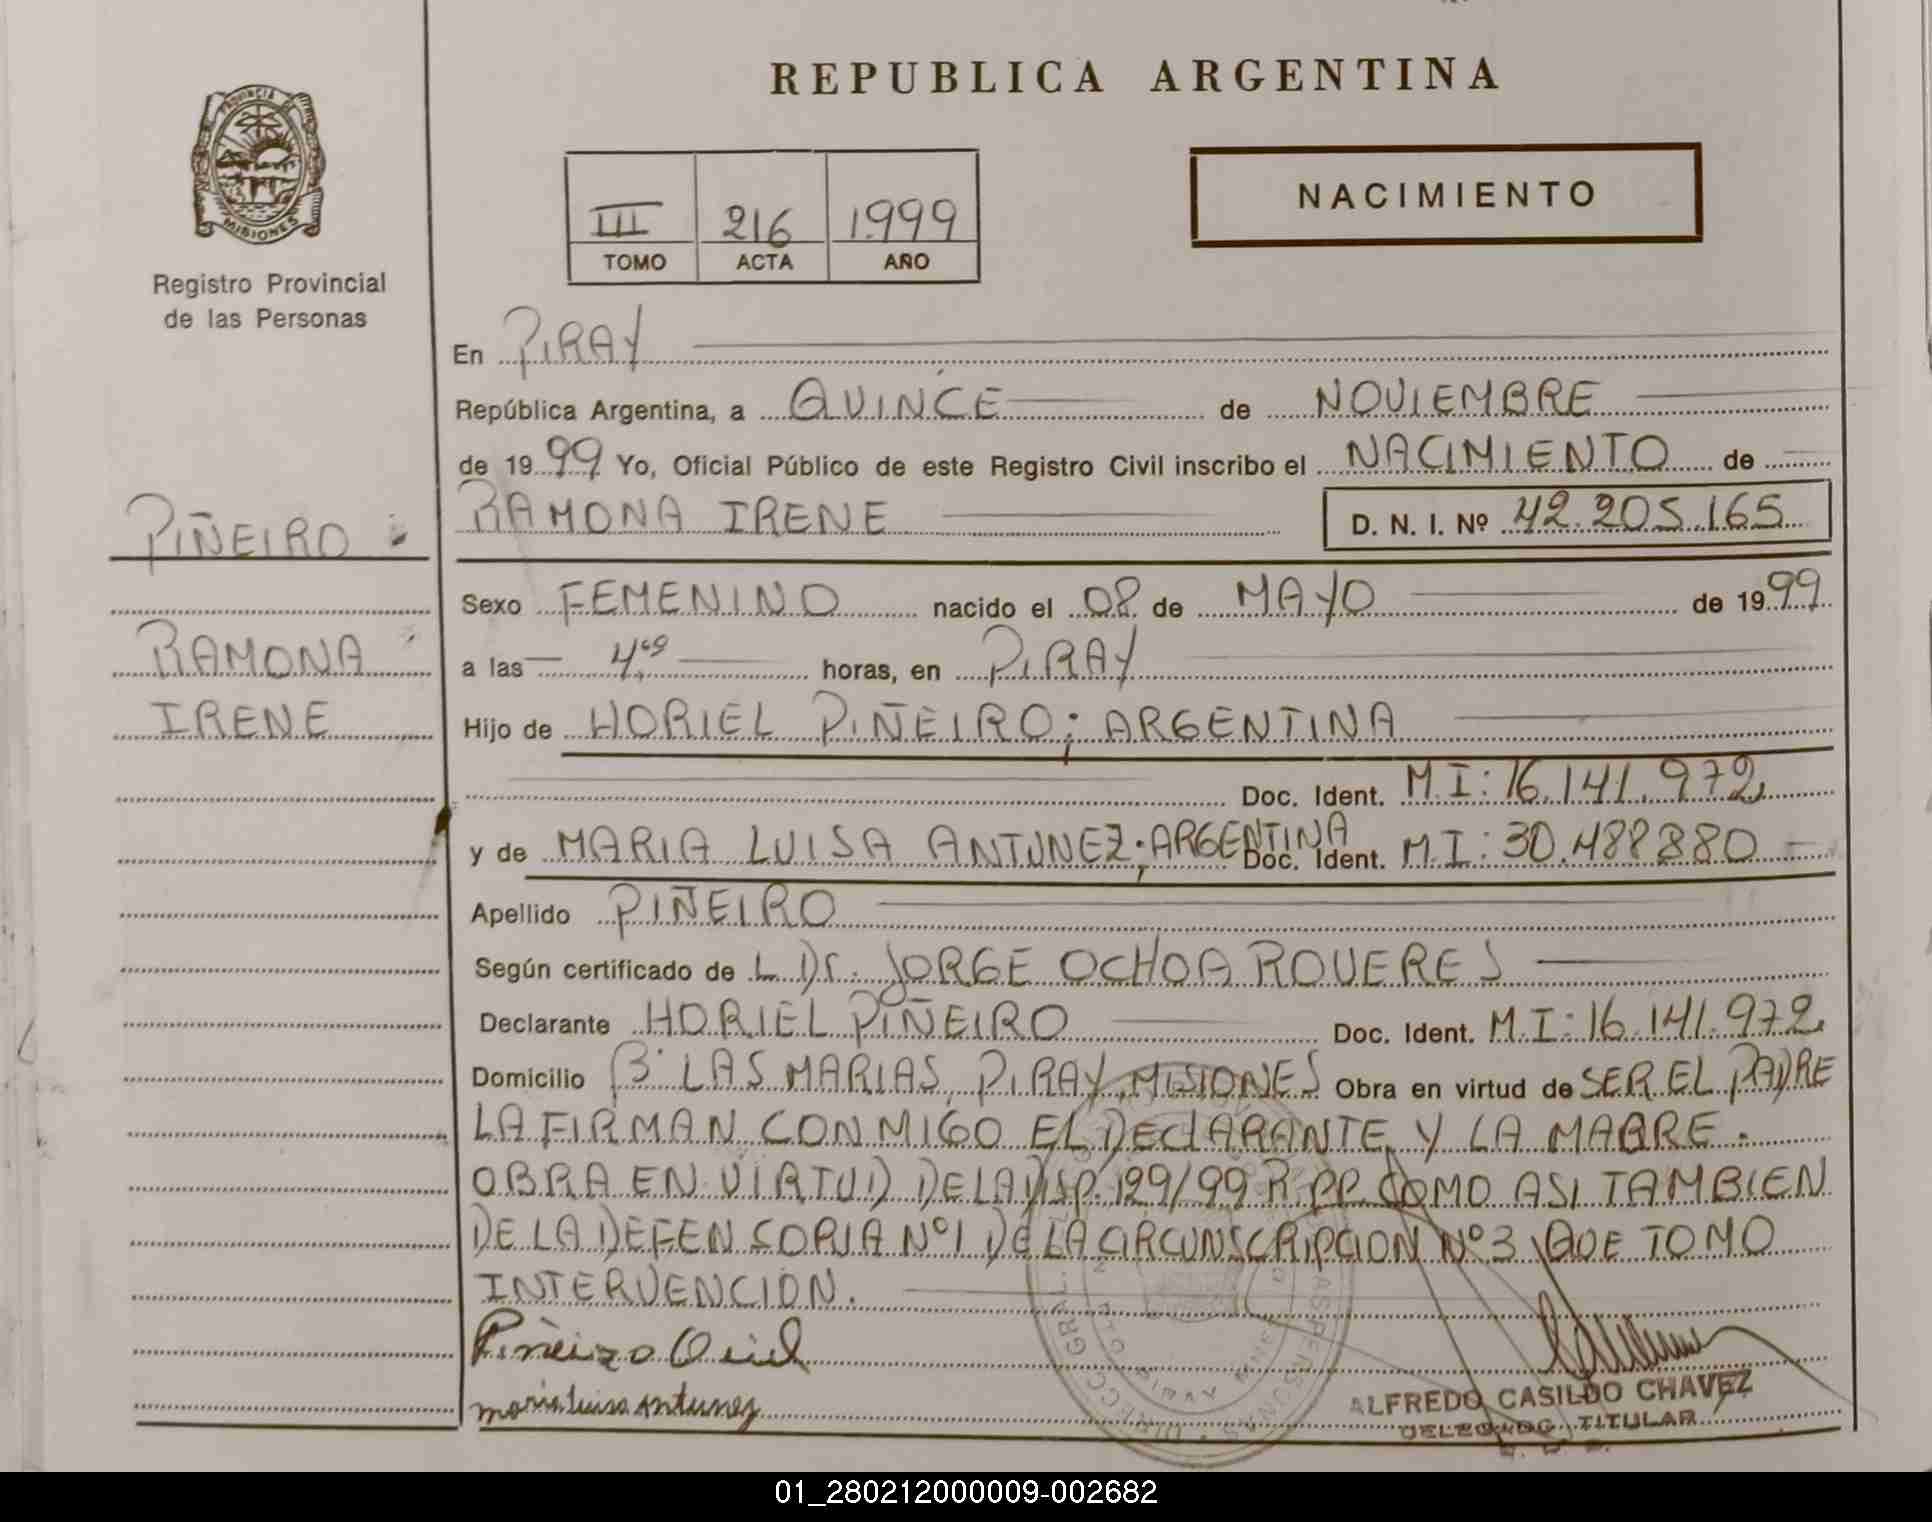 REPUBLICA ARGENTINA
PROVINCIA
MISIONES
Registro Provincial
de las Personas
NACIMIENTO
III 216 1.999
TOMO ACTA AÑO
En PIRAY
República Argentina, a QUINCE de NOVIEMBRE
de 1999 Yo, Oficial Público de este Registro Civil inscribo el NACIMIENTO de
RAMONA IRENE D. N. I. Nº 42.205.165
PIÑEIRO
RAMONA
IRENE
Sexo FEMENINO nacido el 08 de MAYO de 1999
a las horas, en PIRAY
Hijo de HORIEL PIÑEIRO; ARGENTINA
Doc. Ident. M.I: 16.141.972
y de MARIA LUISA ANTUNEZ; ARGENTINA Doc. Ident. M.I: 30.488880
Apellido PIÑEIRO
Según certificado de L DR. JORGE OCHOA ROVERES
Declarante HORIEL PIÑEIRO Doc. Ident. M.I: 16.141.972
Domicilio Bº LAS MARIAS, PIRAY, MISIONES Obra en virtud de SER EL PADRE
LA FIRMAN CONMIGO EL DECLARANTE Y LA MADRE.
OBRA EN VIRTUD DE LA DISP. 129/99 R.P.P. COMO ASI TAMBIEN
DE LA DEFENSORIA Nº1 DE LA CIRCUNSCRIPCION Nº3 QUE TOMO
INTERVENCION.
Piñeiro Oriel
maria luisa antunez
ALFREDO CASILDO CHAVEZ
DELEGADO TITULAR
01_280212000009-002682